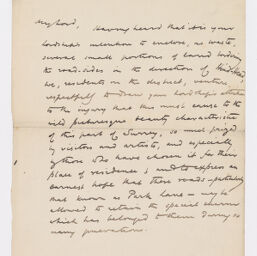 My Lord,
Having heard that it is your
Lordship's intention to enclose, as waste,
several small portions of land bordering
the road-sides in the direction of Hind Head
we, residents in the district, venture
respectfully to draw your Lordship's attention
to the injury that this must cause to the
wild picturesque beauty characteristic
of this part of Surrey, so much prized
by visitors and artists, and especially
by those who have chosen it for their
place of residence; and to express an
earnest hope that these roads - particularly
that known as Park Lane - may be
allowed to retain the special charm
which has belonged to them during so
many generations.